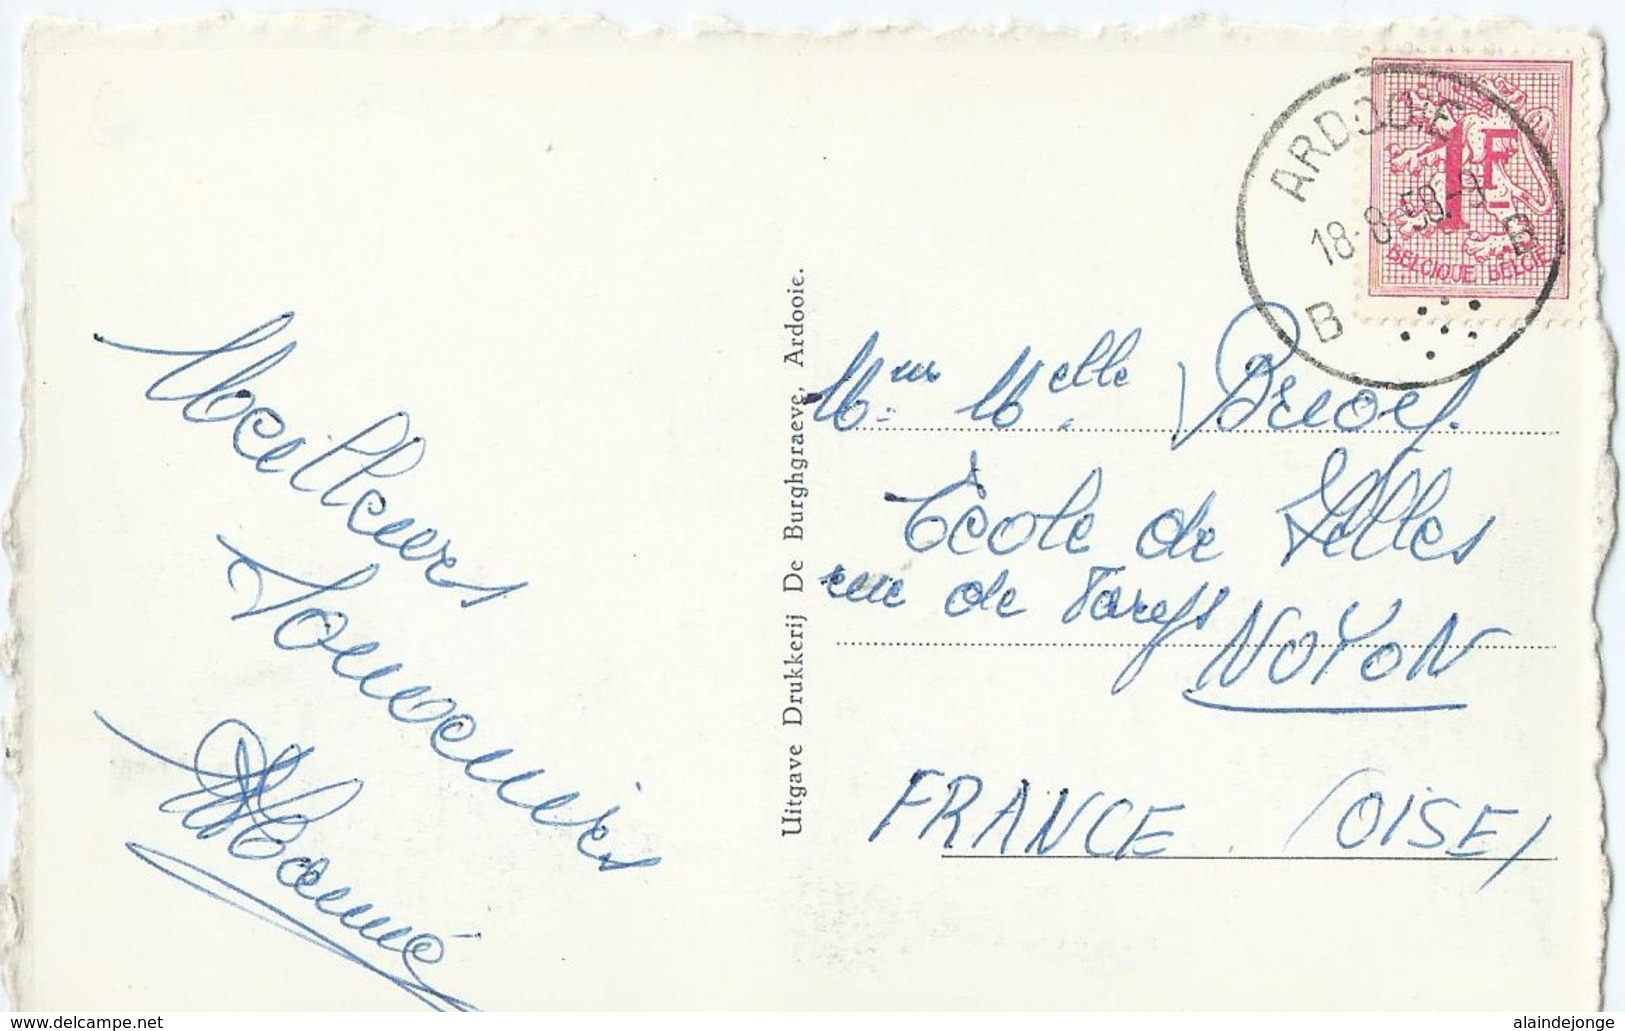 Meilleurs
Souvenirs
Uitgave Drukkerij De Burghgraeve, Ardooie.
ARDOOIE
18-8-58.-9
B B
1F
BELGIQUE BELGIE
Mme Melle
École de Filles
rue de
NOYON
FRANCE (OISE)
www.delcampe.net
alaindejonge